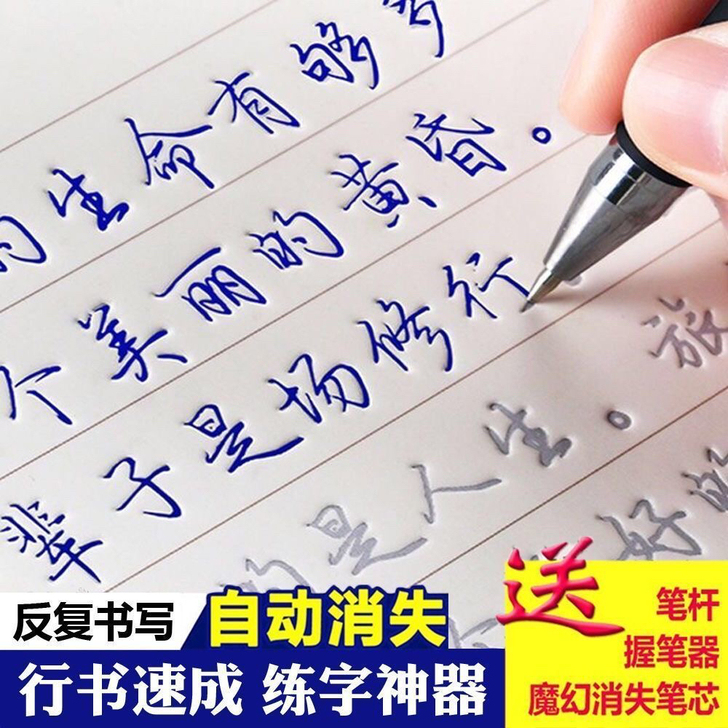 的生命有够多
个美丽的黄昏。
辈子是场修行
旅
的是人生。
好的
反复书写
自动消失
行书速成 练字神器
送
笔杆
握笔器
魔幻消失笔芯